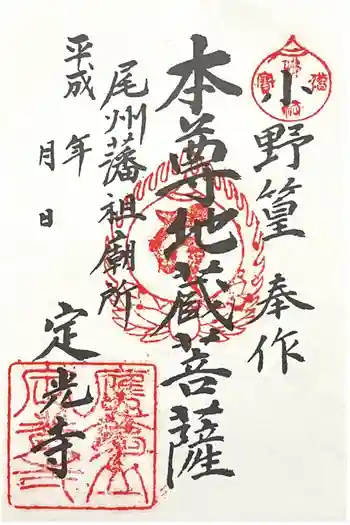 小野篁 奉作
本尊地蔵菩薩
尾州藩祖廟所
平成 年 月 日
定光寺